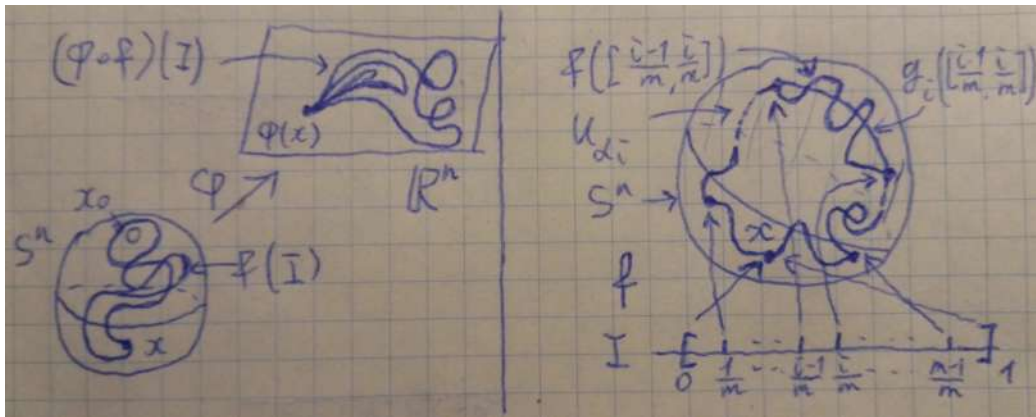 (φ∘f)(I)
φ(x)
φ
ℝⁿ
x₀
Sⁿ
f(I)
x
f([i-1/m, i/m])
gᵢ([i-1/m, i/m])
U_αᵢ
Sⁿ
x
f
I
0 1/m ... i-1/m i/m ... m-1/m 1